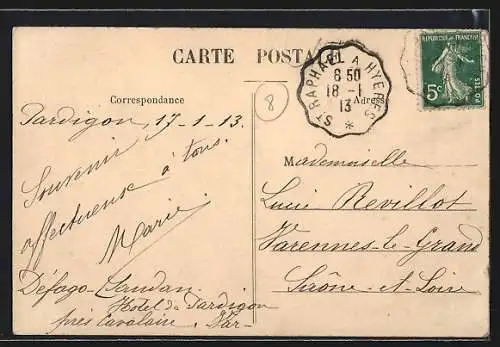 CARTE POSTALE
Correspondance
Adresse
8
ST RAPHAEL A HYERES
8 50
18 -1
13
*
REPUBLIQUE FRANÇAISE
5c
POSTES
Pardigon, 17-1-13.
Souvenir
affectueuse à tous.
Marie.
Hotel de Pardigon
près Cavalaire. Var-
Mademoiselle
Lucie Revillot
Varennes-le-Grand
Saône-et-Loire